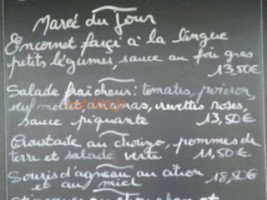 Mareé du Jour
Encornet farçi à la lingue
petits légumes, sauce au foie gras
13,50€
Salade fraîcheur: tomates, poivron,
œuf mollet, ananas, crevettes roses,
sauce piquante 13,50€
Croustade au chorizo, pommes de
terre et salade verte 11,50€
Souris d'agneau au citron
et au miel 18,50€